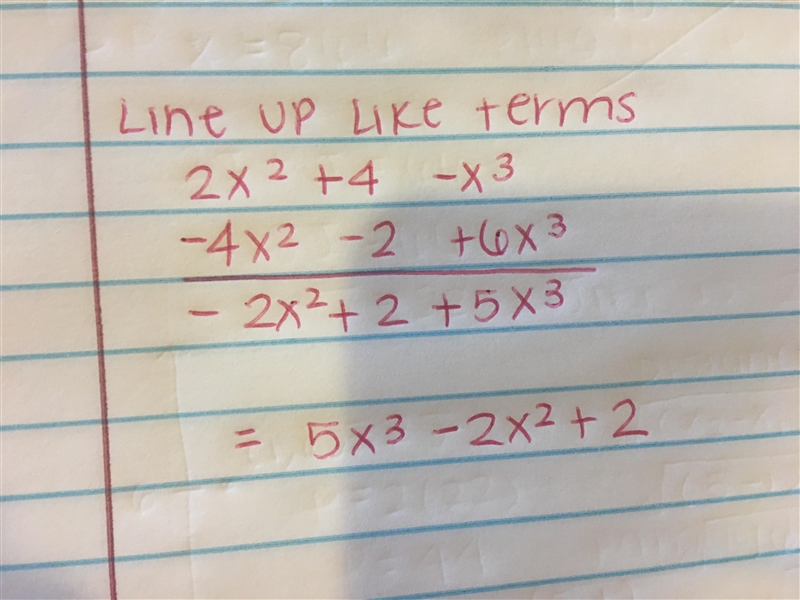 Line up like terms
2x² + 4 - x³
-4x² - 2 + 6x³
- 2x² + 2 + 5x³
= 5x³ - 2x² + 2